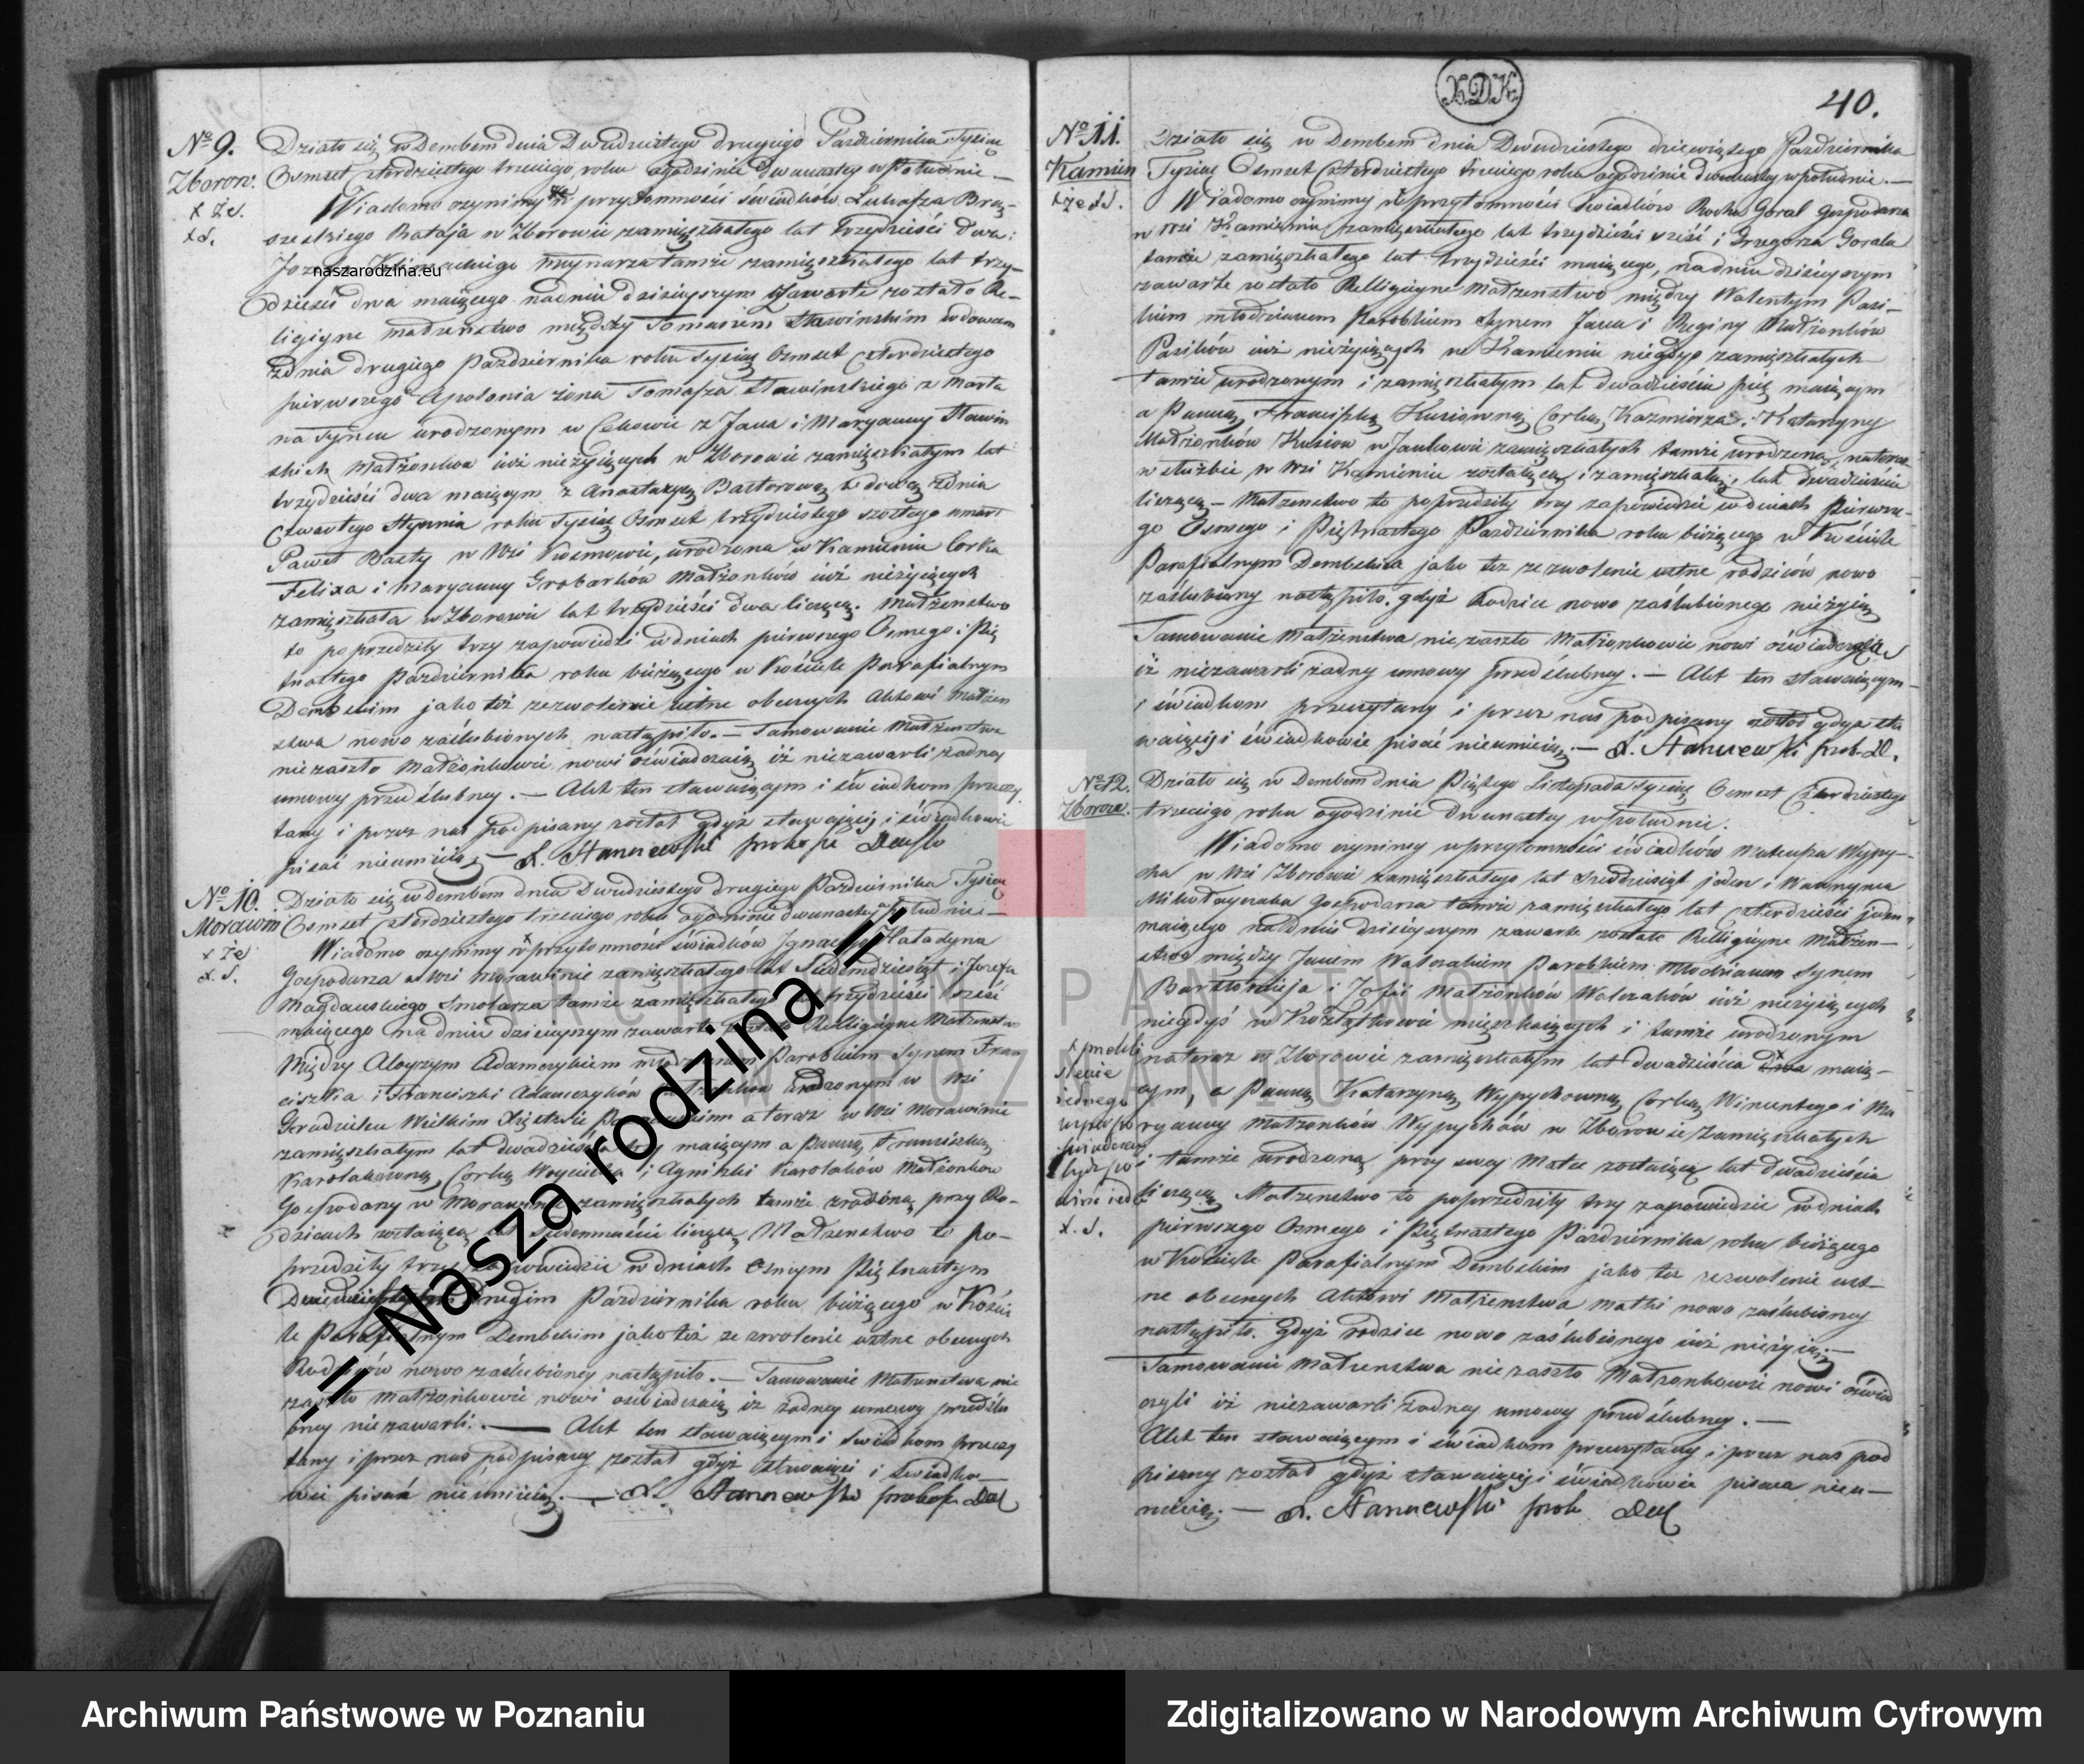 XDK
40.
No 9.
Zborow.
Działo się w Dembem dnia Dwudziestego drugiego Pazdziernika Tysiąc
Osmset czterdziestego trzeciego roku o godzinie dwunastey w Południe —
Wiadomo czynimy przytomności świadków Łukasza
Rataja w Zborowie zamięszkałego lat trzydzieści dwa i
Jozefa młynarza tamże zamięszkałego lat trzy-
dzieści dwa maiącego na dniu dzisieyszym zawarte zostało Re-
ligiyne małżeństwo między Tomaszem Stawinskim wdowcem
z dnia drugiego Pazdziernika roku tysiąc Osmset czterdziestego
pierwszego Apolonia żona Tomasza Stawinskiego zmarła
na Tyncu urodzonym w Cekowie z Jana i Maryanny Stawin
skich małżonków iuż nieżyiących w Zborowie zamięszkałym lat
trzydzieści dwa maiącym z Anastazyą Bartorową wdową z dnia
Czwartego Stycznia roku Tysiąc Osmset trzydziestego szostego umarł
Paweł w Wsi urodzona w Kamieniu Corka
Felixa i Maryanny Grobarków Małżonków iuż nieżyiących
zamięszkała w Zborowie lat trzydzieści dwa licząca. Małżeństwo
to poprzedziły trzy zapowiedzi w dniach pierwszego Osmego i Pię
tnastego Pazdziernika roku bieżącego w Kościele Parafialnym
Dembskim jako też zezwolenie ustne obecnych Aktowi Małżen
stwa nowo zaślubionych nastąpiło. — Tamowanie Małżenstwa
nie zaszło Małżonkowie nowi oświadczaią iż niezawarli żadney
umowy przedślubney. — Akt ten stawaiącym i świadkom przeczy
tany i przez nas podpisany został gdyż stawaiący i świadkowie
pisać nieumieią. —
No 10.
Morawin
Działo się w dembem dnia Dwudziestego drugiego Pazdziernika Tysiąc
Osmset czterdziestego trzeciego roku o godzinie dwunastey w Południe —
Wiadomo czynimy w przytomności świadków Ignacego Haładyna
Gospodarza w Wsi Morawinie zamięszkałego lat Siedemdziesiąt i Jozefa
Magdanskiego Smolarza tamże zamięszkałego lat trzydzieści sześć
maiącego na dniu dzisieyszym zawarte zostało Relligiyne Małżenstwo
Między Aloyzym Adamczykiem młodzianem Parobkiem Synem Fran
ciszka i Franciszki Adamczyków Małżonków Urodzonym w Wsi
Wielkim Xięstwie Poznanskim a teraz w Wsi Morawinie
zamięszkałym lat dwadzieścia maiącym a Panną Franciszką
Karolakówną Corką Woyciecha i Agniszki Karolaków Małżonków
Gospodarzy w Morawinie zamięszkałych tamże zrodzoną przy Ro-
dzicach zostaiącą lat Siedemnaście licząca, Małżenstwo to po-
przedziły trzy zapowiedzie w dniach Osmym Piętnastym
drugim Pazdziernika roku bieżącego w Koście
le Parafialnym Dembskim jako też zezwolenie ustne obecnych
Rodziców nowo zaślubioney nastąpiło. — Tamowanie Małżenstwa nie
zaszło Małżonkowie nowi oświadczaią iż żadney umowy przedślu
bney niezawarli. — Akt ten stawaiącym i świadkom przeczy
tany i przez nas podpisany został gdyż stawaiący i świadko-
wie pisać nieumieią. —
No 11.
Kamień
Działo się w Dembem dnia Dwudziestego dziewiątego Pazdziernika
Tysiąc Osmset Czterdziestego trzeciego roku o godzinie dwunastey w południe. —
Wiadomo czynimy w przytomności świadków Rocha Goral Gospodarza
w Wsi Kamieniu zamięszkałego lat trzydzieści sześć i Grzegorza Gorala
tamże zamięszkałego lat trzydzieści maiącego, na dniu dzisieyszym
zawarte zostało Relligiyne Małżenstwo między Walentym Pasi-
kiem młodzianem Parobkiem Synem Jana i Reginy Małżonków
Pasików iuż nieżyiących w Kamieniu niegdyś zamięszkałych
tamże urodzonym i zamięszkałym lat dwadzieścia pięć maiącym
a Panną Franciszką Kusiowną Corką Kazmirza i Katarzyny
Małżonków Kusiow w Jankowie zamięszkałych tamże urodzoną, na teraz
w służbie w Wsi Kamieniu zostaiącą i zamięszkałą, lat dwadzieścia
liczącą — Małżenstwo to poprzedziły trzy zapowiedzie w dniach Pierwsze-
go Osmego i Piętnastego Pazdziernika roku bieżącego w Kościele
Parafialnym Dembskim jako też zezwolenie ustne rodziców nowo
zaślubioney nastąpiło. gdyż Rodzice nowo zaślubionego nieżyią
Tamowanie Małżenstwa nie zaszło Małżonkowie nowi oświadczyli
iż niezawarli żadney umowy przedślubney. — Akt ten stawaiącym
i świadkom przeczytany i przez nas podpisany został gdyż sta
waiący i świadkowie pisać nieumieią. —
No 12.
Zborow.
Działo się w Dembem dnia Piątego Listopada Tysiąc Osmset Czterdziestego
trzeciego roku o godzinie dwunastey w południe.
Wiadomo czynimy w przytomności świadków Mateusza Wypy-
cha w Wsi Zborowie zamięszkałego lat jeden i Wawrzynca
Mikołayczaka Gospodarza tamże zamięszkałego lat czterdzieści jeden
maiącego na dniu dzisieyszym zawarte zostało Relligiyne Małżen-
stwo między Janem Walczakiem Parobkiem Młodzianem Synem
Bartłomieja i Zofii Małżonków Walczaków iuż nieżyiących
niegdyś w Koźlątkowie mięszkaiących i tamże urodzonym
na teraz w Zborowie zamięszkałym lat dwadzieścia dwa maią-
cym, a Panną Katarzyną Wypychowną Corką Wincentego i Ma
ryanny Małżonków Wypychów w Zborowie zamięszkałych
i tamże urodzoną przy swey Matce zostaiącą lat dwadzieścia
liczącą Małżenstwo to poprzedziły trzy zapowiedzie w dniach
pierwszego Osmego i Piętnastego Pazdziernika roku bieżącego
w Kościele Parafialnym Dembskim jako też zezwolenie ust-
ne obecnych Aktowi Małżenstwa matki nowo zaślubioney
nastąpiło. Gdyż rodzice nowo zaślubionego iuż nieżyią. —
Tamowanie Małżenstwa nie zaszło Małżonkowie nowi oświad
czyli iż niezawarli żadney umowy przedślubney. —
Akt ten stawaiącym i świadkom przeczytany i przez nas pod
pisany został gdyż stawaiący i świadkowie pisma nieu-
mieią. —
naszarodzina.eu
= Nasza rodzina =
ARCHIWUM PAŃSTWOWE
W POZNANIU
Archiwum Państwowe w Poznaniu
Zdigitalizowano w Narodowym Archiwum Cyfrowym